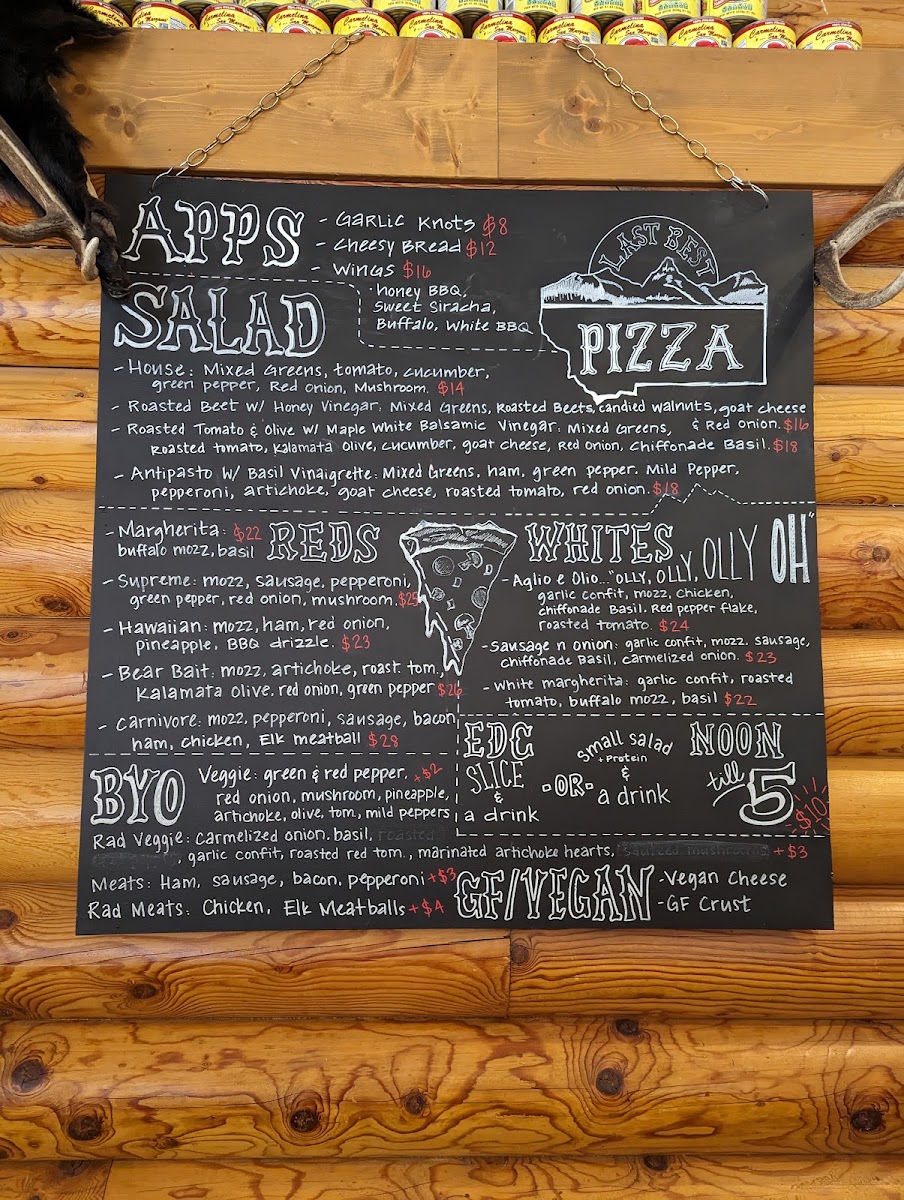 Carmelina
San Marzano
APPS
- Garlic Knots $8
- Cheesy Bread $12
- Wings $16
Honey BBQ,
Sweet Siracha,
Buffalo, White BBQ
LAST BEST
PIZZA
SALAD
- House: Mixed Greens, tomato, cucumber,
green pepper, Red onion, Mushroom. $14
- Roasted Beet w/ Honey Vinegar: Mixed Greens, Roasted Beets, candied walnuts, goat cheese
& Red onion. $16
- Roasted Tomato & Olive w/ Maple White Balsamic Vinegar: Mixed Greens,
Roasted tomato, Kalamata Olive, cucumber, goat cheese, Red Onion, Chiffonade Basil. $18
- Antipasto w/ Basil Vinaigrette: Mixed Greens, ham, green pepper. Mild Pepper,
pepperoni, artichoke, goat cheese, roasted tomato, red onion. $18
REDS
- Margherita: $22
buffalo mozz, basil
- Supreme: mozz, sausage, pepperoni,
green pepper, red onion, mushroom. $25
- Hawaiian: mozz, ham, red onion,
pineapple, BBQ drizzle. $23
- Bear Bait: mozz, artichoke, roast tom.,
Kalamata Olive. red onion, green pepper $26
- Carnivore: mozz, pepperoni, sausage, bacon,
ham, chicken, Elk meatball $28
WHITES
- Aglio e Olio..."OLLY, OLLY, OLLY OH"
garlic confit, mozz, chicken,
chiffonade Basil, Red pepper flake,
roasted tomato. $24
- Sausage n onion: garlic confit, mozz. sausage,
chiffonade Basil, carmelized onion. $23
- White margherita: garlic confit, roasted
tomato, buffalo mozz, basil $22
EDC
SLICE
&
a drink
-OR-
small salad
+ Protein
&
a drink
NOON
till 5
$10
BYO
Veggie: green & red pepper, +$2
red onion, mushroom, pineapple,
artichoke, olive, tom, mild peppers
Rad Veggie: carmelized onion. basil, roasted
, garlic confit, roasted red tom., marinated artichoke hearts, sauteed mushrooms +$3
Meats: Ham, sausage, bacon, pepperoni +$3
Rad Meats: Chicken, Elk Meatballs +$4
GF/VEGAN
- Vegan Cheese
- GF Crust